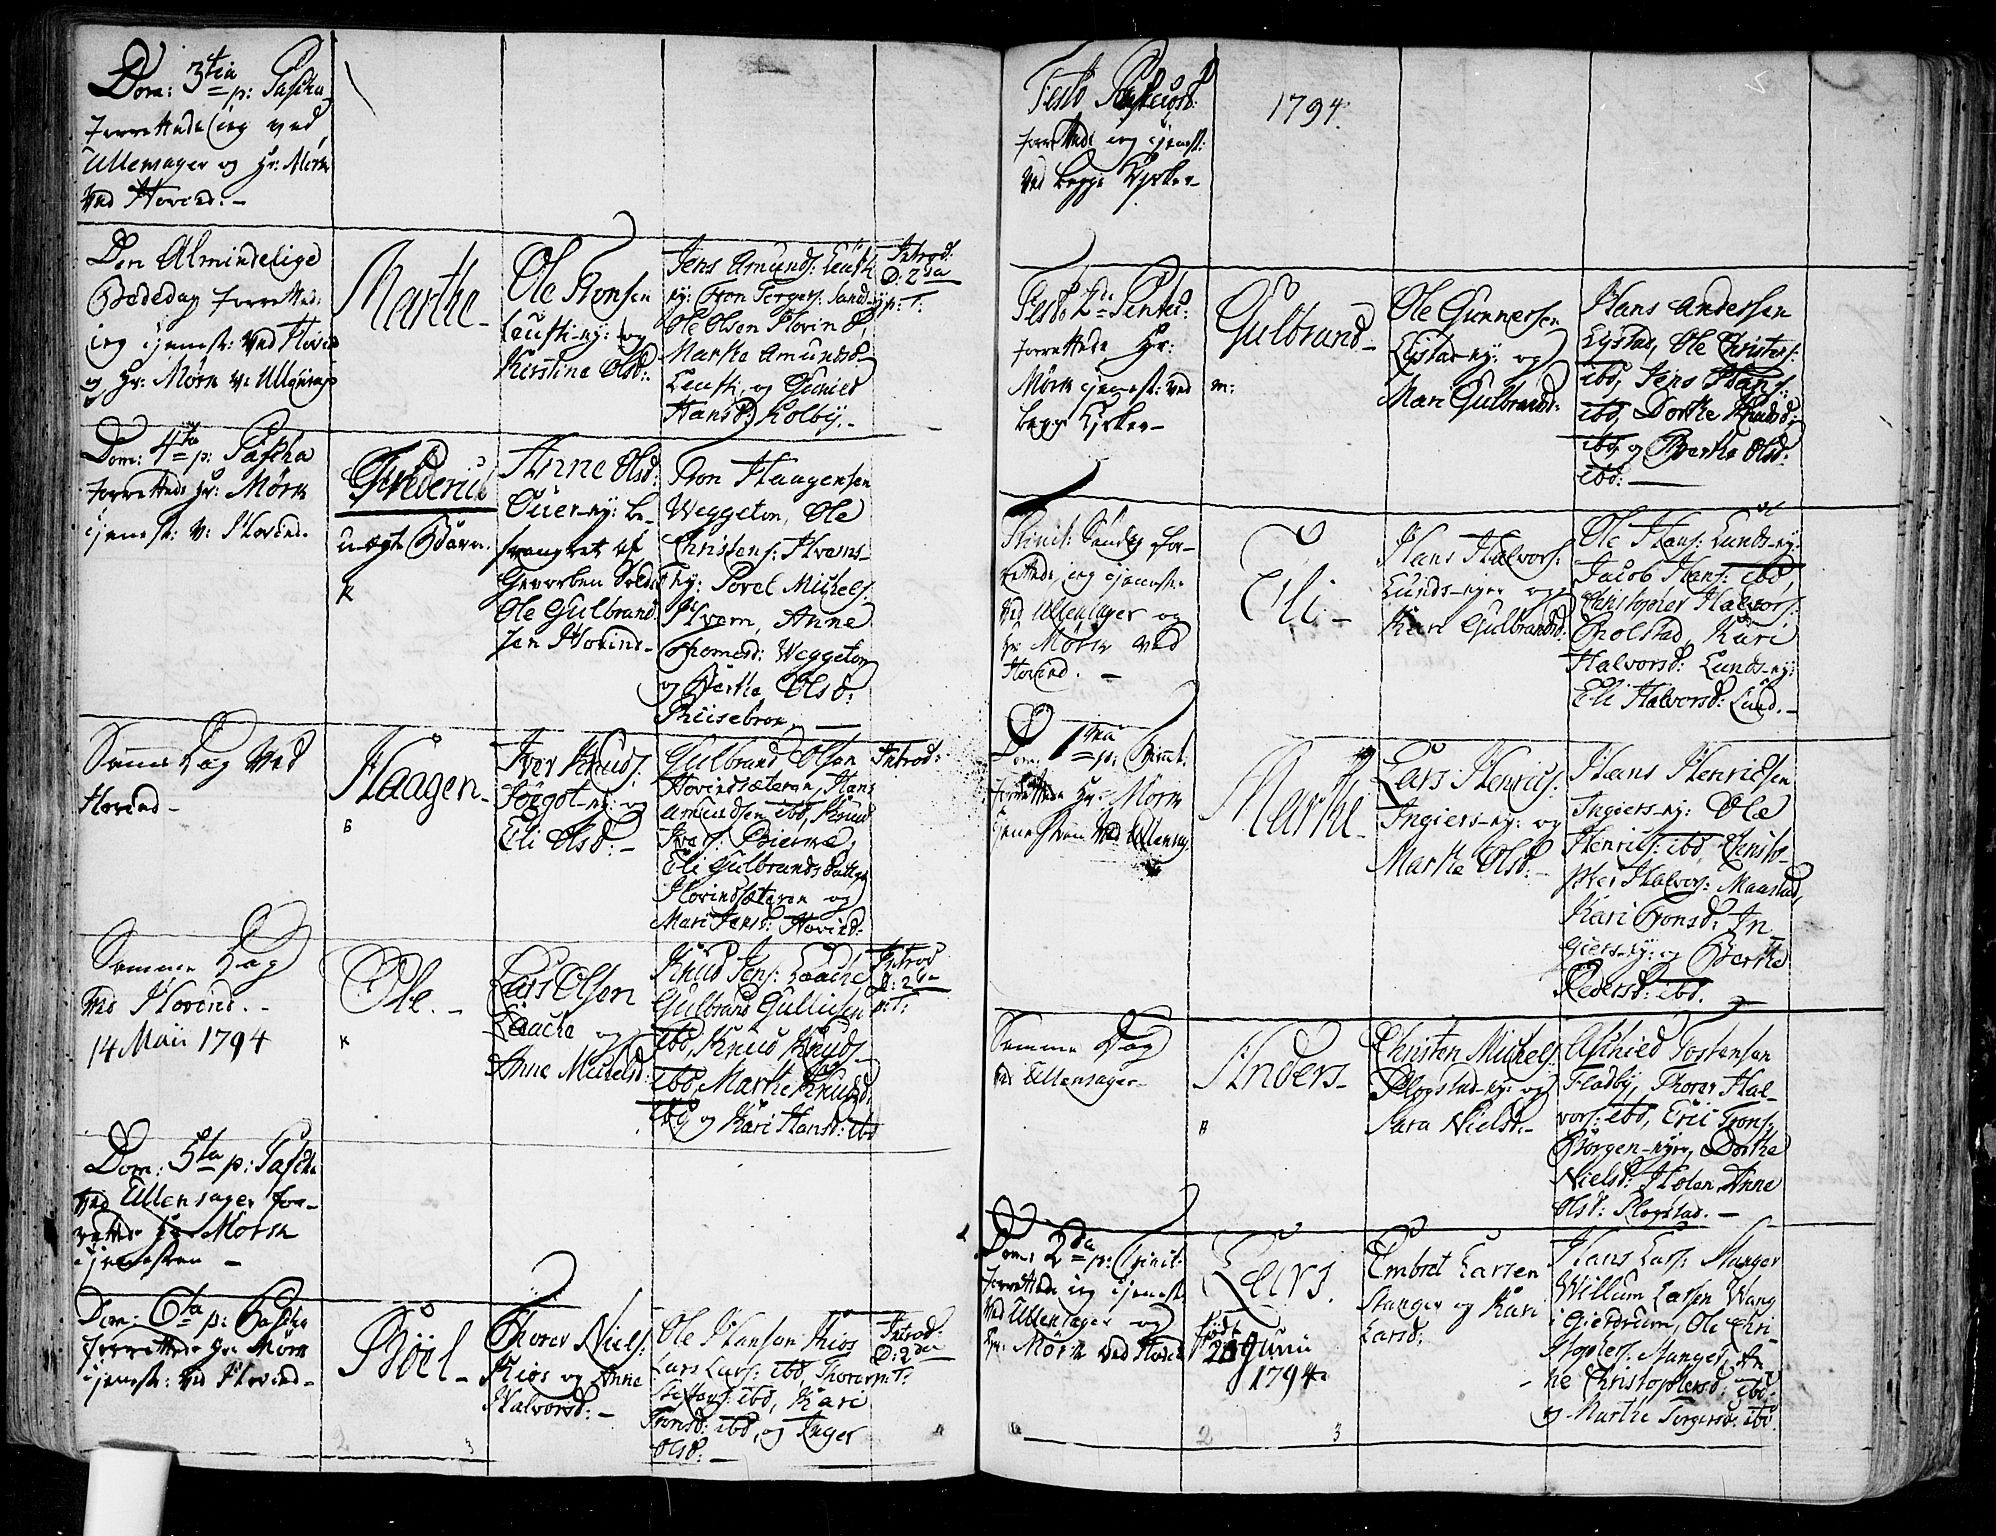 Dom: 3tia p: Pascha
forrettede ieg ved
Ullensager og Hr: Mørk
ved Hovind. -
Den Almindelige
Bededag forretted:
ieg tjenest: ved Hovind
og Hr: Mørk v: Ullensag:
Marthe -
Ole Tronsen
ey: og
Kirstine Olsd:
Jens Amunds:
ey: Tron Torgers:
Ole Olsen Hovind
Marthe Amundsd:
og Gunild
Hansd: Kolby. -
Introd:
D: 2da
p: T:
Dom: 4ta p: Pascha
forrettede Hr: Mørk
tjenest: v: Hovind.
Friderich
uægte Barn.
K
Anne Olsd:
ey: be-
svangret af
Gevorben Soldat
Ole Gulbrand
sen Hovind -
Tron Haagensen
Weggeton, Ole
Christens: Hvams-
ey: Povel Michels:
Hvam, Anne
Thomesd: Weggeton
og Berthe Olsd:
Risebroe. -
Samme Dag ved
Hovind -
Haagen. -
B
Iver Knuds:
ey: og
Eli Olsd: -
Gulbrand Olsen
Hovindsæteren, Hans
Amundsen ibd, Knud
Ivers: Bierche,
Eli Gulbrandsdatter
Hovindsæteren og
Mari Jensd: Hovind.
Introd:
Samme Dag
ved Hovind. -
14 Maii 1794
Ole. -
K
Lars Olsen
Laache og
Anne Michelsd:
Knud Jens: Laache
Gulbrand Gullichsen
ibd, Knud Knuds:
ibd, Marthe Knudsd:
ibd og Kari Hansd: ibd
Introd
D: 2da
p: T:
Dom: 5ta p: Pascha
ved Ullensager for-
rettede Hr Mørk
tjenesten -
Dom: 6ta p: Pascha
forrettede Hr: Mørk
tjenest: ved Hovind -
Böel -
Thorer Niels:
Kios og Anne
Halvorsd: -
Ole Hansen Kios
Lars Lars: ibd, Thorer
ibd, Kari
Tronsd: ibd, og Inger
Olsd: -
Introd:
D: 2da
p: T:
2
3
Festo Pentecost:
forrettede ieg tjenest:
ved begge Kirker -
1794.
Festo 2de Pentec:
forrettede Hr:
Mørk tjenest: ved
begge Kirker -
Gulbrand -
m:
Ole Gunnersen
Lystad-ey: og
Mari Gulbrandsd:
Hans Andersen
Lystad, Ole Christens:
ibd, Jens Hans:
ibd, Dorthe Knudsd:
ibd, og Berthe Olsd:
ibd: -
Trinit: Søndag for-
rettede ieg tjenest:
ved Ullensager og
Hr: Mørk ved
Hovind. -
Eli -
Hans Halvors:
Lunds-eyer og
Kari Gulbrandsd:
Ole Hans: Lunds-ey:
Jacob Hans: ibd
Christopher Halvors:
Kari
Halvorsd: Lunds-ey:
Eli Halvorsd: Lund. -
Dom: 1ma p: Trinit:
forrettede Hr: Mørk
tjenesten ved Ullensag:
Marthe -
Lars Henrics:
Ingiers-ey: og
Marthe Olsd: -
Hans Henricsen
Ingiers-ey: Ole
Henrics: ibd, Christo-
pher Halvors: Maastad,
Kari Tronsd: In
giers-ey: og Berthe
Pedersd: ibd.
Samme Dag
ved Ullensager -
Anders -
B
Christen Michels:
Algstad-ey: og
Sara Nielsd: -
Aschied Tostensen
Fladby, Thorer Hal-
vors: ibd, Eric Trons:
Borgen-eyer, Dorthe
Nielsd: Holen, Anne
Olsd: -
Dom: 2da p: Trinit:
forrettede ieg tjenest:
ved Ullensager og
Hr: Mørk ved Hovind
Lars.
født
28 Junii
1794.
Embret Larsen
Stanger og Kari
Larsd:
Hans Lars: Stanger
Willum Larsen Wang
i Gierdrum, Ole Chri-
stophers: Stanger, An-
ne Christophersd: ibd.
og Marthe Torgersd: ibd.
2
3